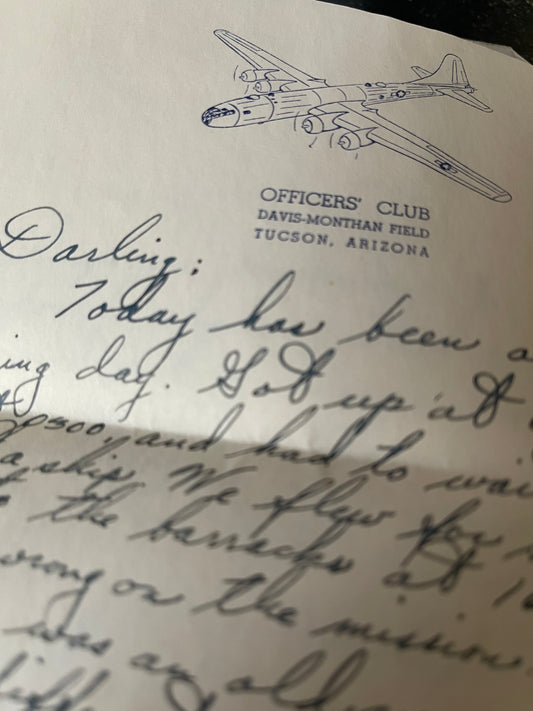 OFFICERS' CLUB
DAVIS-MONTHAN FIELD
TUCSON, ARIZONA
Darling:
Today has been a
ing day. Got up at
0500, and had to wai
a ship. We flew for
the barracks at 1
wrong on the mission.
was an old